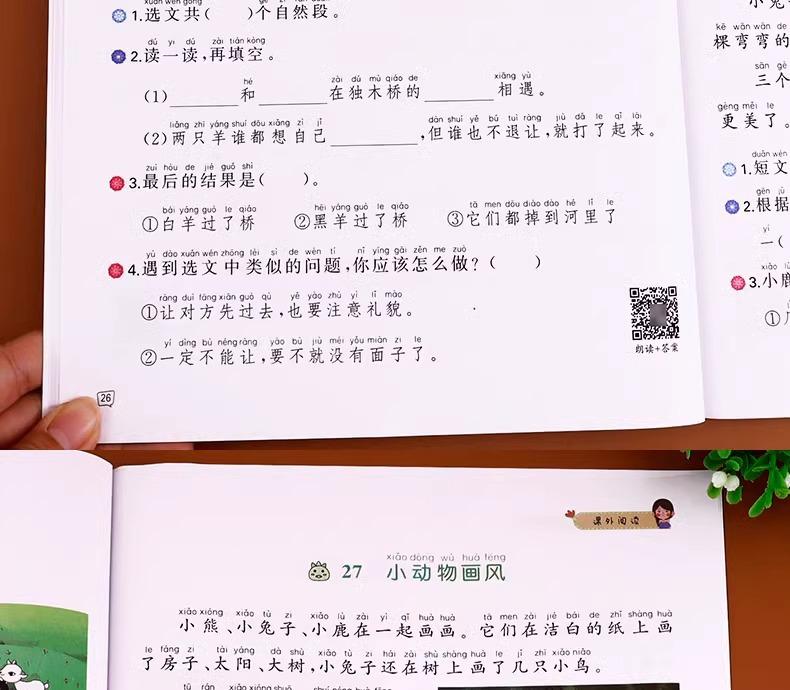 xuān wén gòng
1.选文共(　　)个自然段。
dú yi dú zài tián kòng
2.读一读,再填空。
hé zài dú mù qiáo de xiāng yù
(1)________和________在独木桥的________相遇。
liǎng zhī yáng shuí dōu xiǎng zì jǐ dàn shuí yě bú tuì ràng jiù dǎ le qǐ lái
(2)两只羊谁都想自己__________,但谁也不退让,就打了起来。
zuì hòu de jié guǒ shì
3.最后的结果是(　　)。
bái yáng guò le qiáo hēi yáng guò le qiáo tā men dōu diào dào hé lǐ le
①白羊过了桥 ②黑羊过了桥 ③它们都掉到河里了
yù dào xuǎn wén zhōng lèi sì de wèn tí nǐ yīng gāi zěn me zuò
4.遇到选文中类似的问题,你应该怎么做?(　　)
ràng duì fāng xiān guò qù yě yào zhù yì lǐ mào
①让对方先过去,也要注意礼貌。
yí dìng bù néng ràng yào bù jiù méi yǒu miàn zi le
②一定不能让,要不就没有面子了。
朗读+答案
26
kē wān wān de
棵弯弯的
sān gè
三个
gèng měi le
更美了。
duǎn wén
1.短文
gēn jù
2.根据
yí
一(
xiǎo lù
3.小鹿
①
课外阅读
xiǎo dòng wù huà fēng
27 小动物画风
xiǎo xióng xiǎo tù zi xiǎo lù zài yì qǐ huà huà tā men zài jié bái de zhǐ shàng huà
小熊、小兔子、小鹿在一起画画。它们在洁白的纸上画
le fáng zi tài yáng dà shù xiǎo tù zi hái zài shù shàng huà le jǐ zhī xiǎo niǎo
了房子、太阳、大树,小兔子还在树上画了几只小鸟。
tū rán xiǎo xióng shuō shuí néng huà fēng